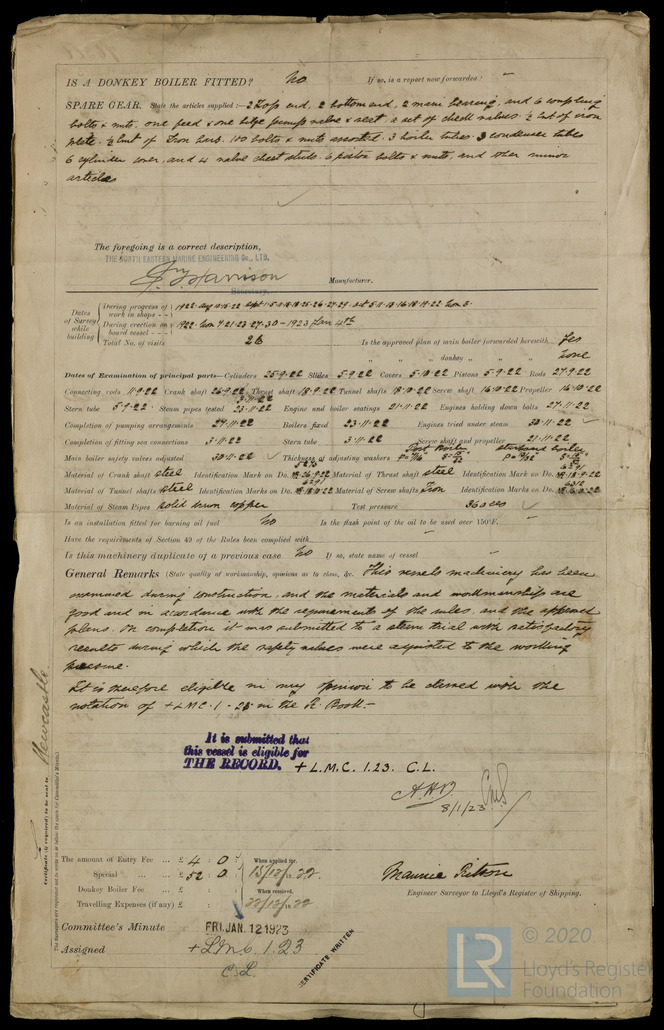 IS A DONKEY BOILER FITTED? No If so, is a report now forwarded? —
SPARE GEAR. State the articles supplied:— 2 Top end, 2 bottom end, 2 main bearing, and 6 coupling
bolts & nuts. one feed & one bilge pump valve & seat. a set of check valves. ½ cwt of iron
plate. ½ cwt of Iron bars. 100 bolts & nuts assorted. 3 boiler tubes. 3 condenser tubes
6 cylinder cover, and 4 valve chest studs. 6 piston bolts & nuts, and other minor
articles
The foregoing is a correct description,
THE NORTH EASTERN MARINE ENGINEERING Co., LTD.
Harrison Manufacturer.
Secretary.
Dates of Survey while building
During progress of work in shops - - 1922.
During erection on board vessel - - - 1922. Nov 7.21.23.27.30 - 1923 Jan 4th
Total No. of visits 26 Is the approved plan of main boiler forwarded herewith Yes
" " " donkey " " None
Dates of Examination of principal parts—Cylinders 25.9.22 Slides 5.9.22 Covers 5.10.22 Pistons 5.9.22 Rods 27.9.22
Connecting rods 11.9.22 Crank shaft 26.9.22 Thrust shaft 18.9.22 Tunnel shafts 18.10.22 Screw shaft 16.10.22 Propeller 16.10.22
Stern tube 5.9.22 Steam pipes tested 23.11.22 Engine and boiler seatings 21.11.22 Engines holding down bolts 27.11.22
Completion of pumping arrangements 27.11.22 Boilers fixed 23.11.22 Engines tried under steam 30.11.22
Completion of fitting sea connections 3.11.22 Stern tube 3.11.22 Screw shaft and propeller 21.11.22
Main boiler safety valves adjusted 30.11.22 Thickness of adjusting washers Port Boiler Starboard boiler
Material of Crank shaft Steel Identification Mark on Do. Material of Thrust shaft Steel Identification Mark on Do.
Material of Tunnel shafts Steel Identification Marks on Do. Material of Screw shafts Iron Identification Marks on Do.
Material of Steam Pipes Solid drawn copper Test pressure 360
Is an installation fitted for burning oil fuel No Is the flash point of the oil to be used over 150°F. —
Have the requirements of Section 49 of the Rules been complied with —
Is this machinery duplicate of a previous case No If so, state name of vessel —
General Remarks (State quality of workmanship, opinions as to class, &c. This vessels machinery has been
examined during construction, and the materials and workmanship are
good and in accordance with the requirements of the rules, and the approved
plans. On completion it was submitted to a steam trial with satisfactory
results during which the safety valves were adjusted to the working
pressure.
It is therefore eligible in my opinion to be classed with the
notation of + LMC . 1 . 23 in the R. Book.—
It is submitted that
this vessel is eligible for
THE RECORD. + L.M.C. 1.23. C.L.
8/1/23
Newcastle
Certificate (if required) to be sent to
The amount of Entry Fee ... £ 4 : 0 : When applied for,
Special ... £ 52 : 0 : 13/12/1922
Donkey Boiler Fee ... £ : : When received,
Travelling Expenses (if any) £ : : 22/12/1922
Maurice
Engineer Surveyor to Lloyd's Register of Shipping.
Committee's Minute FRI. JAN. 12 1923
Assigned + L.M.C. 1.23
C.L.
CERTIFICATE WRITTEN
© 2020
Lloyd's Register
Foundation
LR